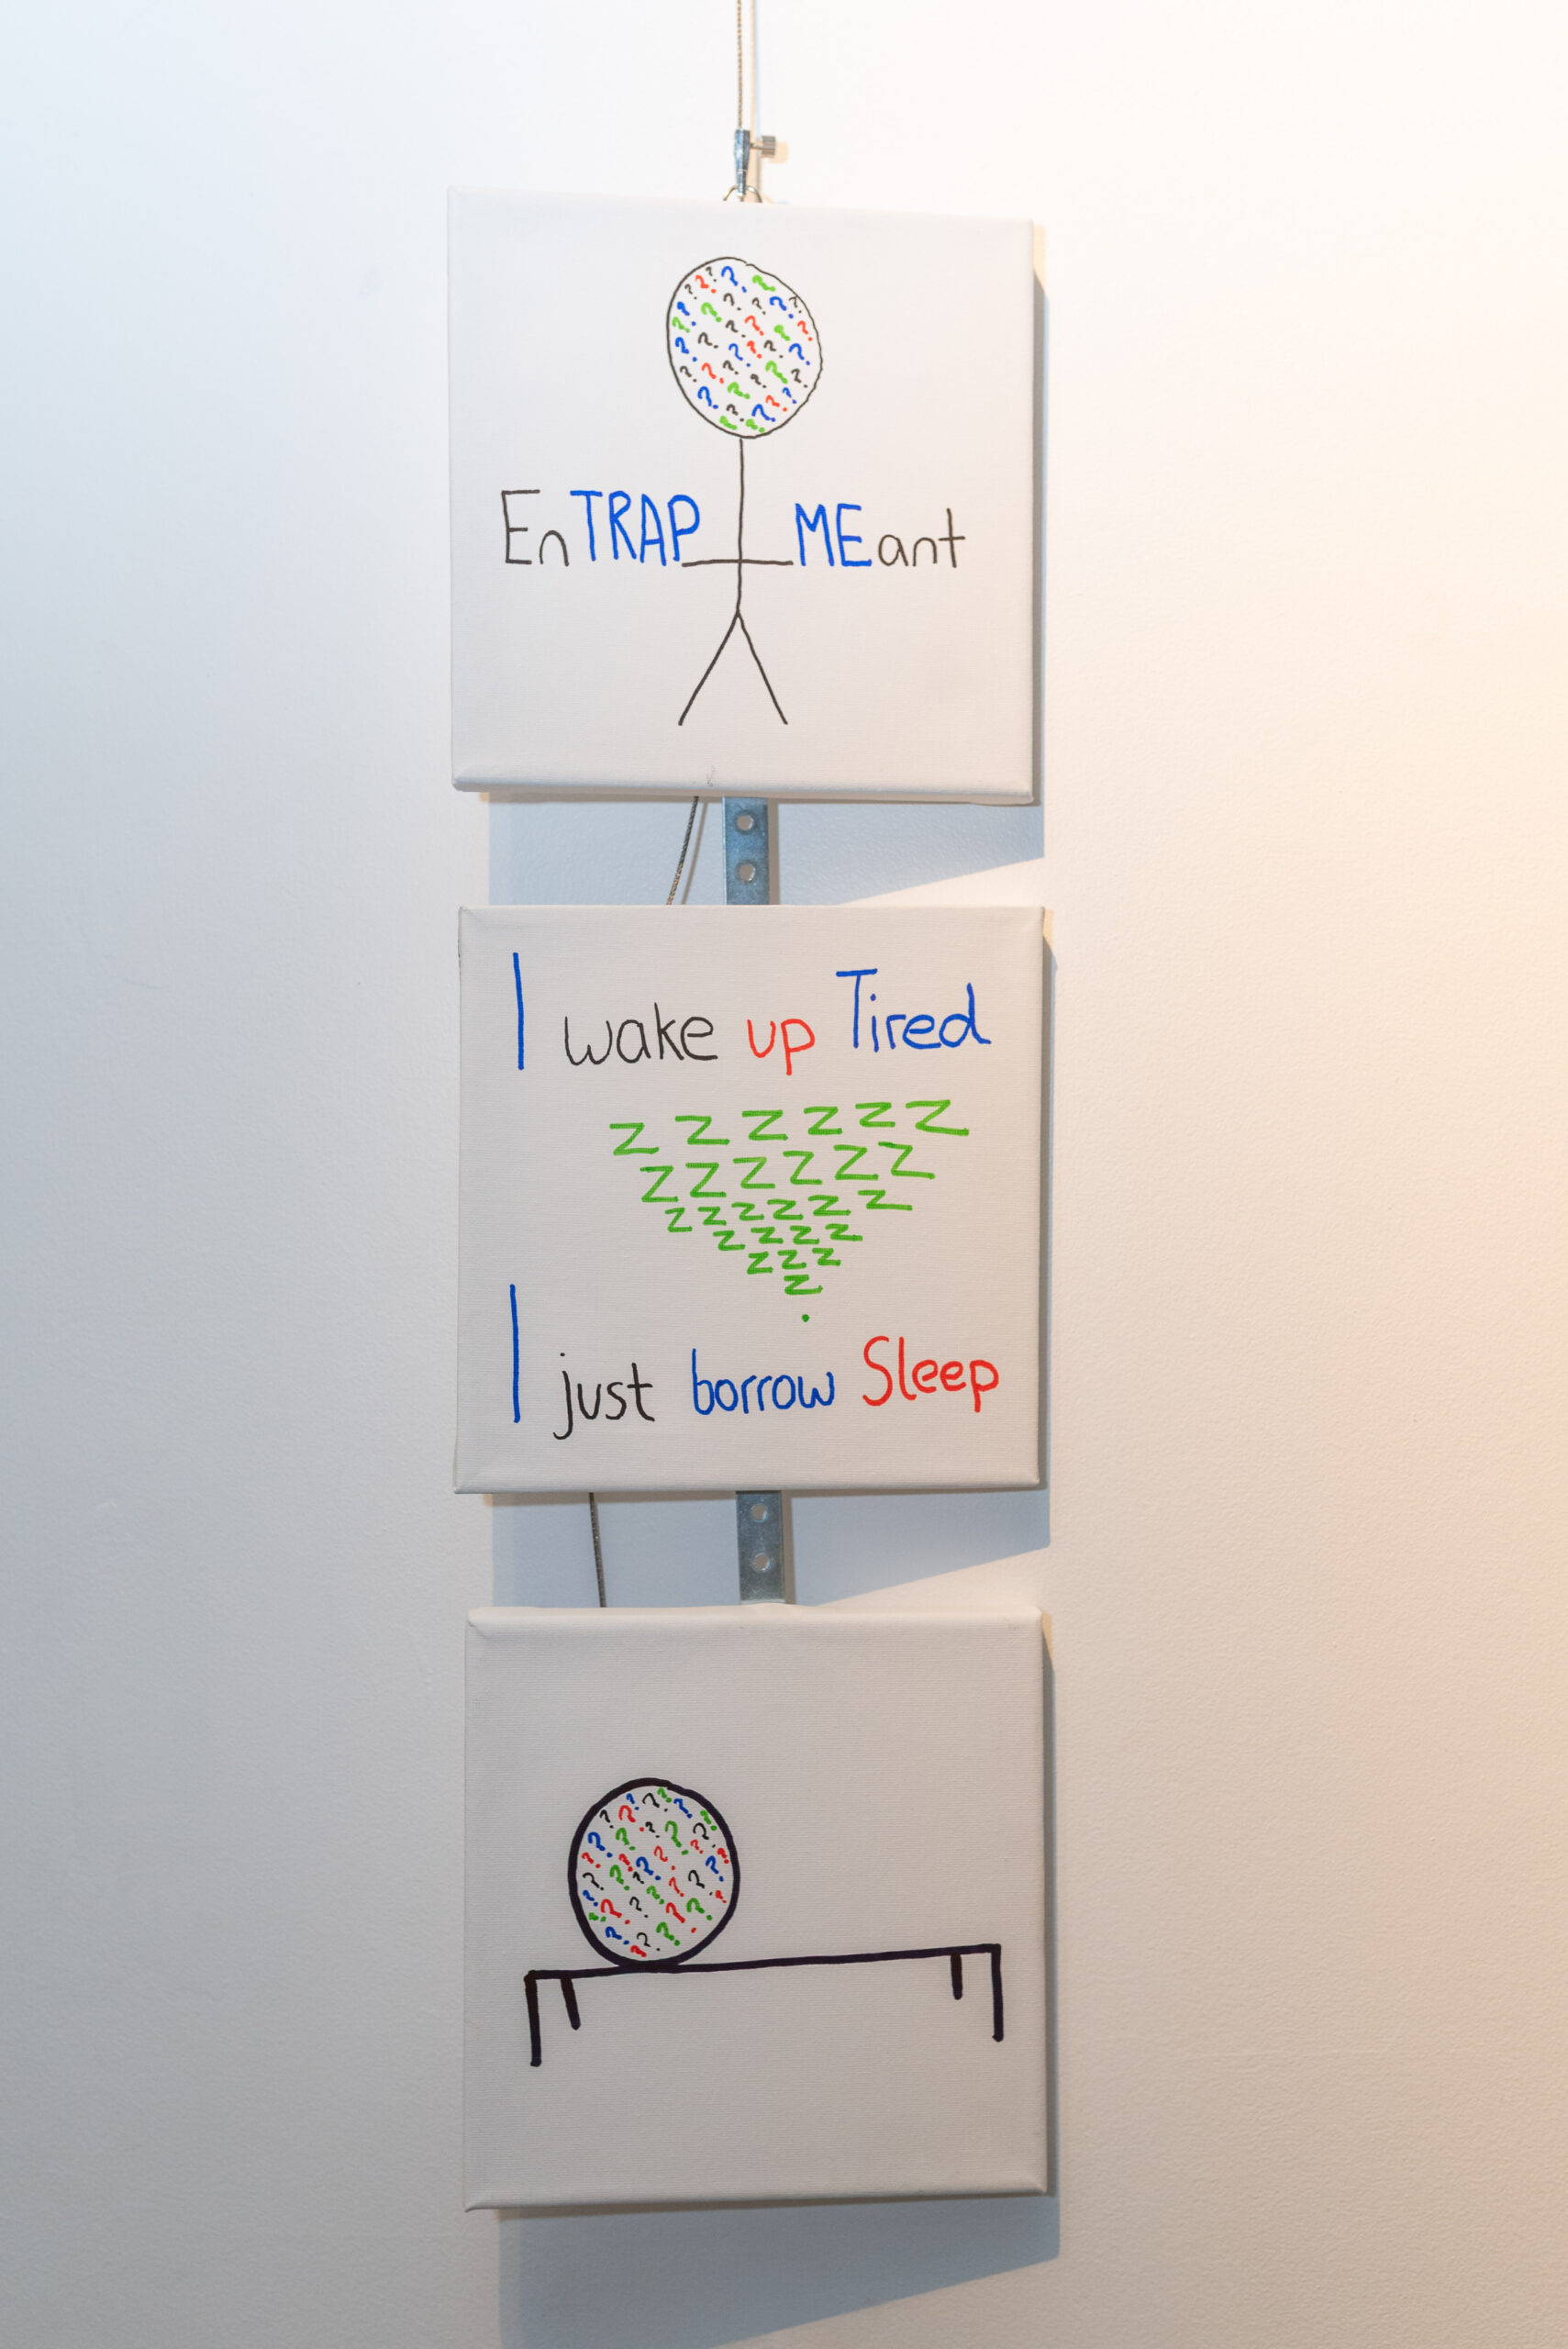 EnTRAP MEant
I wake up Tired
Z Z Z Z Z Z
Z Z Z Z Z Z
Z Z Z Z Z Z
Z Z Z Z
Z Z Z
Z
.
I just borrow Sleep